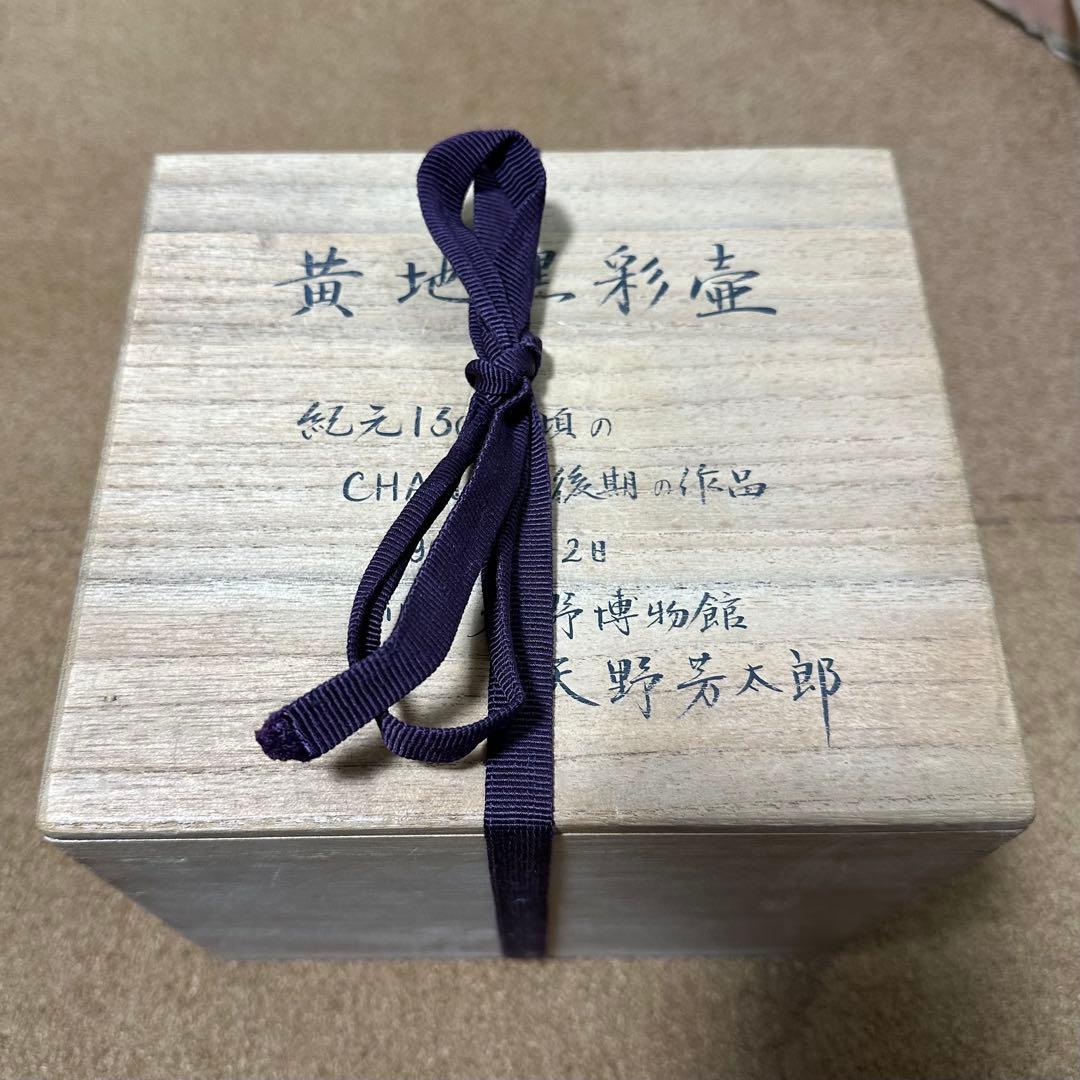 黄地黒彩壷
紀元13 頃の
CHA 後期の作品
9 2日
野博物館
天野芳太郎